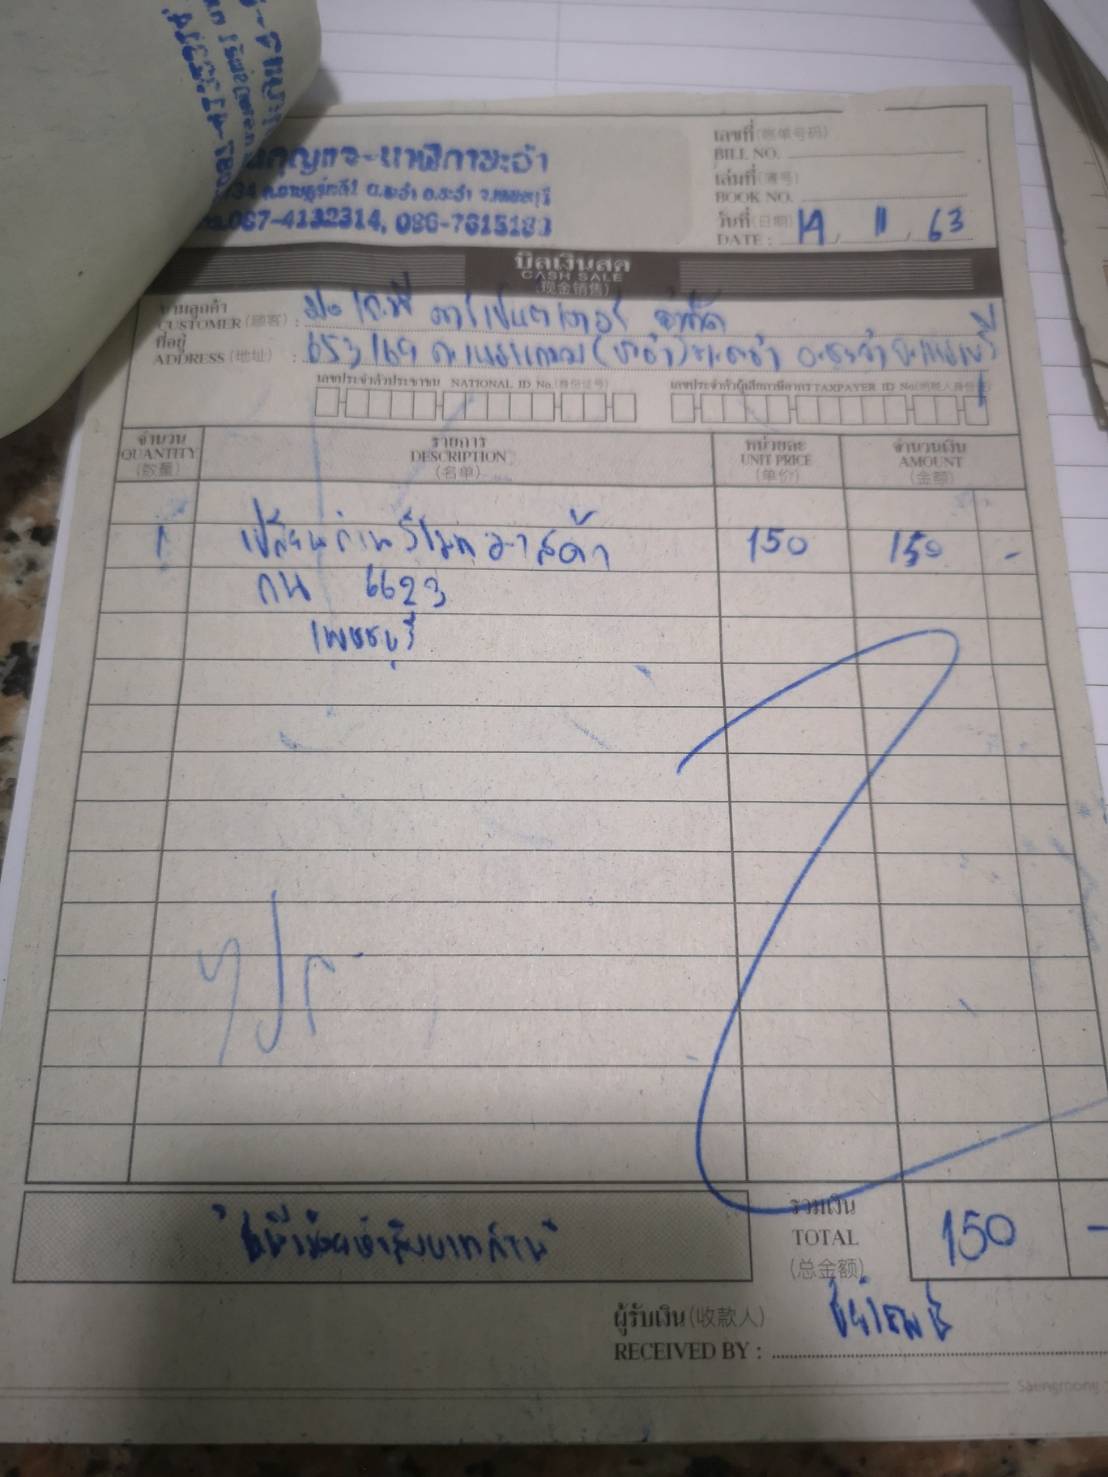 เลขที่(账单号码)
BILL NO.
เล่มที่(簿号)
BOOK NO.
วันที่(日期)
DATE : 14 / 11 / 63
กุญแจ-นาฬิกาชะอำ
อ.ชะอำ
087-4132314, 086-7615183
บิลเงินสด
CASH SALE
(现金销售)
นามลูกค้า
CUSTOMER (顾客) : จำกัด
ที่อยู่
ADDRESS (地址) : 653/169
เลขประจำตัวประชาชน NATIONAL ID No.(身份证号)
เลขประจำตัวผู้เสียภาษีอากร TAXPAYER ID No.(纳税人身份证)
จำนวน รายการ หน่วยละ จำนวนเงิน
QUANTITY DESCRIPTION UNIT PRICE AMOUNT
(数量) (名单) (单价) (金额)
1 เปลี่ยนถ่านรีโมท มาสด้า 150 150 -
กน 6623
เพชรบุรี
รวมเงิน
หนึ่งร้อยห้าสิบบาทถ้วน TOTAL 150 -
(总金额)
ผู้รับเงิน(收款人)
RECEIVED BY :